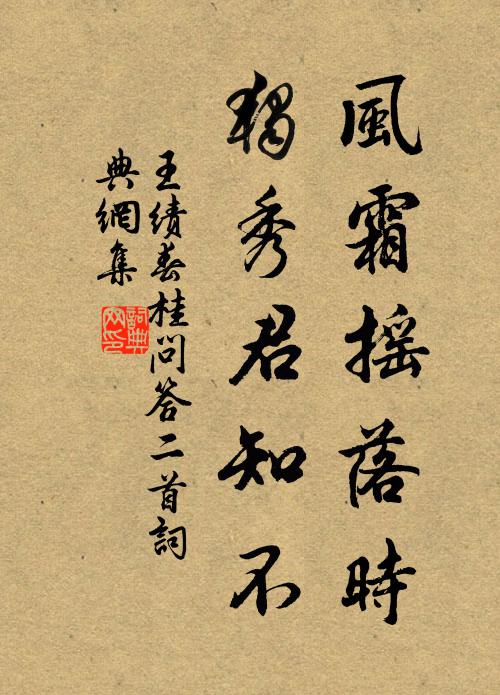 風霜搖落時
獨秀君知不
王績春桂問答二首詞
典網集
詞典
网印